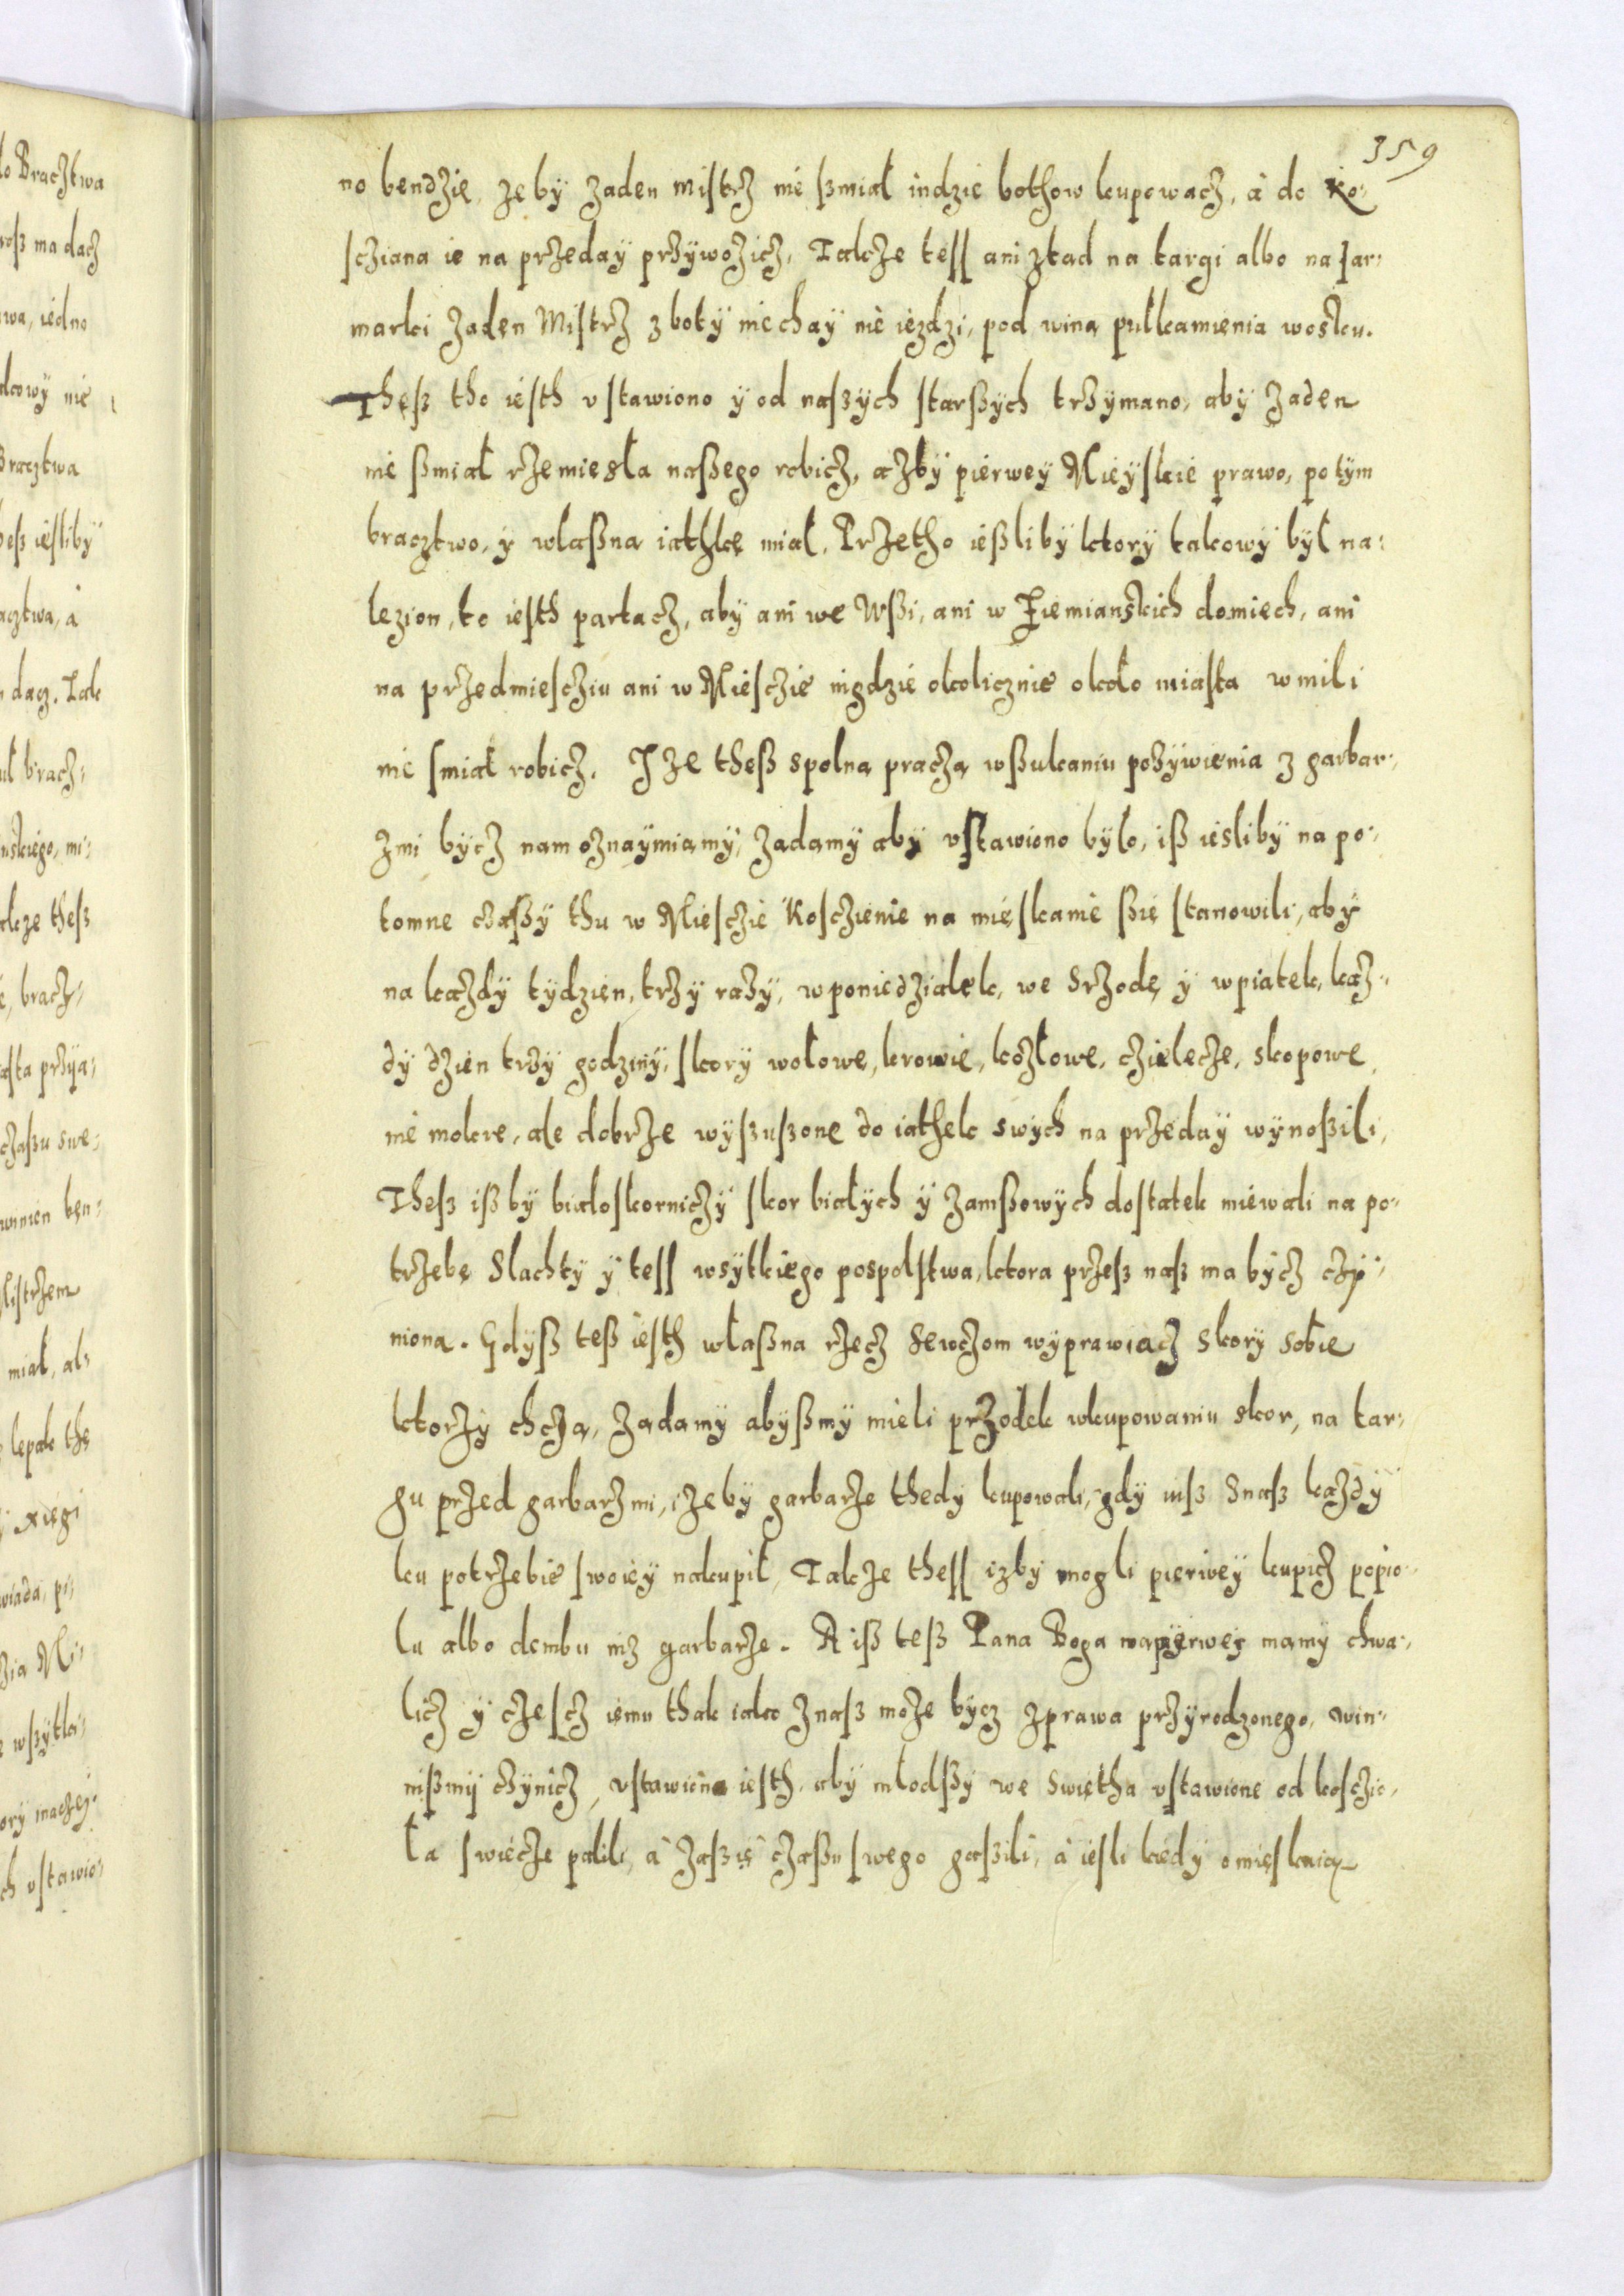 359
no bendzie, zeby zaden mistrz nie ßmiał indzie bothow kupowacz, á do Ko-
scziana ie na przeday przywozicz, Takze tess ani ztad na targi albo na Jar-
marki zaden Mistrz z boty niechay nie iezdzi, pod wina pułkamienia wosku.
Theß tho iesth ustawiono ÿ od naszych starßych trzymano, aby zaden
nie ßmiał rzemiesła naßego robicz, azby pierwey Mieyskie prawo, potym
bracztwo, y własna iathkę miał, Przetho ießliby ktory takowy był na-
lezion, to iesth partacz, aby ani we Wßi, ani w Ziemianskich domiech, ani
na przedmiesciu ani w Miesczie nigdzie okolicznie około miasta w mili
nie smiał robicz. I ze theß spolna pracza w ßukaniu pozywienia z garbar-
zmi bycz nam oznaymiamy, zadamy aby ustawiono było, iß iesliby na po-
tomne czaßy thu w Miesczie Kosczienie na mieskanie ßię stanowili, aby
na kazdy tydzien, trzy razy, w poniedziałek, we Srzodę y w piatek, kaz-
dy dzien trzy godziny, skory wołowe, krowie, kozłowe, czielecze, skopowe
nie mokre, ale dobrze wyszuszone do iathek swych na przeday wynoßili,
Thesz ißby białoskorniczy skor białych ÿ zamßowych dostatek miewali na po-
trzebę Slachty ÿ tess wsytkiego pospolstwa, ktora przesz nasz ma bycz czy-
niona. Gdyß teß iesth własna rzecz Sewczom wyprawiacz skory sobie
ktorzy chcza, zadamy abyßmy mieli przodek w kupowaniu skor, na tar-
gu przed garbarzmi, izeby garbarze thedy kupowali, gdy iusz Snasz kazdy
ku potrzebie swoiey nakupił, Takze thess izby mogli pierwey kupicz popio-
łu albo dembu niz garbarze. A iß teß Pana Boga napyerwey mamy chwa-
licz ÿ czescz iemu thak iako znasz moze bycz z prawa przyrodzonego, win-
nißmy czynicz, ustawiono iesth, aby młodßy we Swietha ustawione od kosczio-
ła swiecze palili, á zaszie czaßu swego gaszili, á iesli kiedy omieskaia